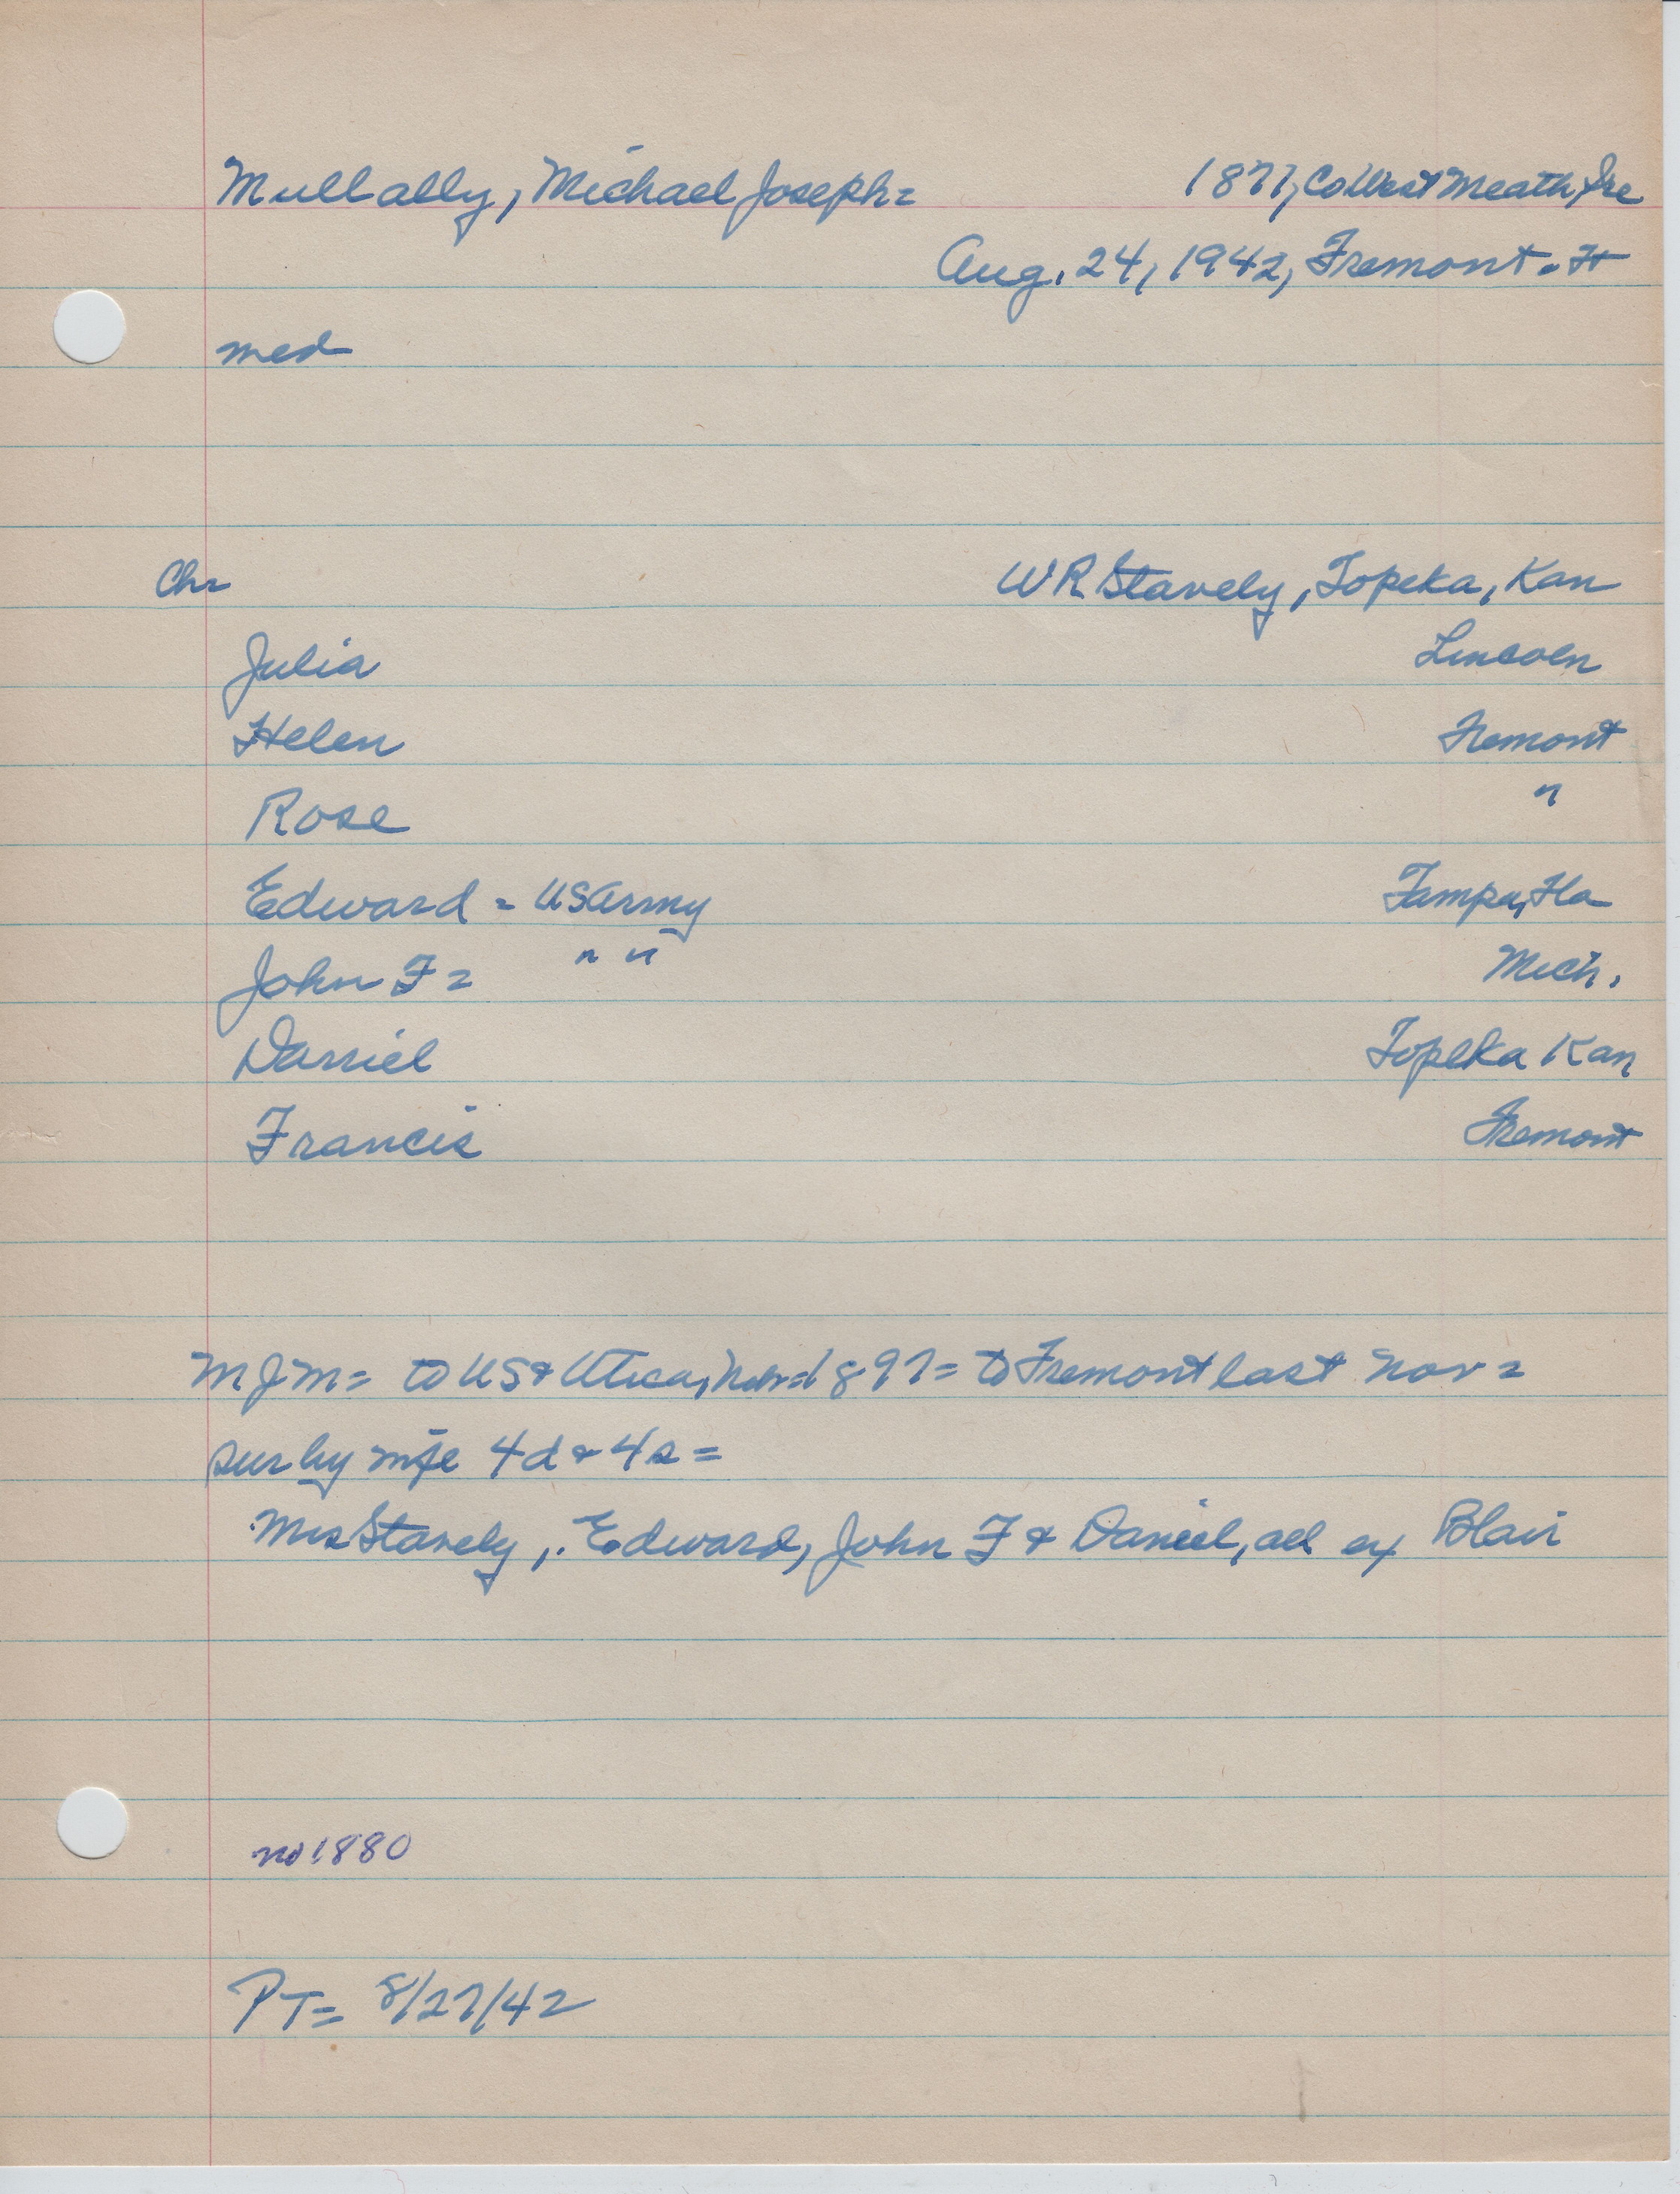 Mullally, Michael Joseph = 1877, Co West Meath, Ire
Aug. 24, 1942, Fremont. Ft
med
Chr WR Stavely, Topeka, Kan
Julia Lincoln
Helen Fremont
Rose "
Edward = US Army Tampa, Fla
John F = " " Mich.
Daniel Topeka Kan
Francis Fremont
MJM = to US & Utica, Nebr = 1897 = to Fremont last Nov =
sur by wife 4d & 4s =
Mrs Stavely, Edward, John F & Daniel, all ex Blair
no 1880
PT = 8/27/42